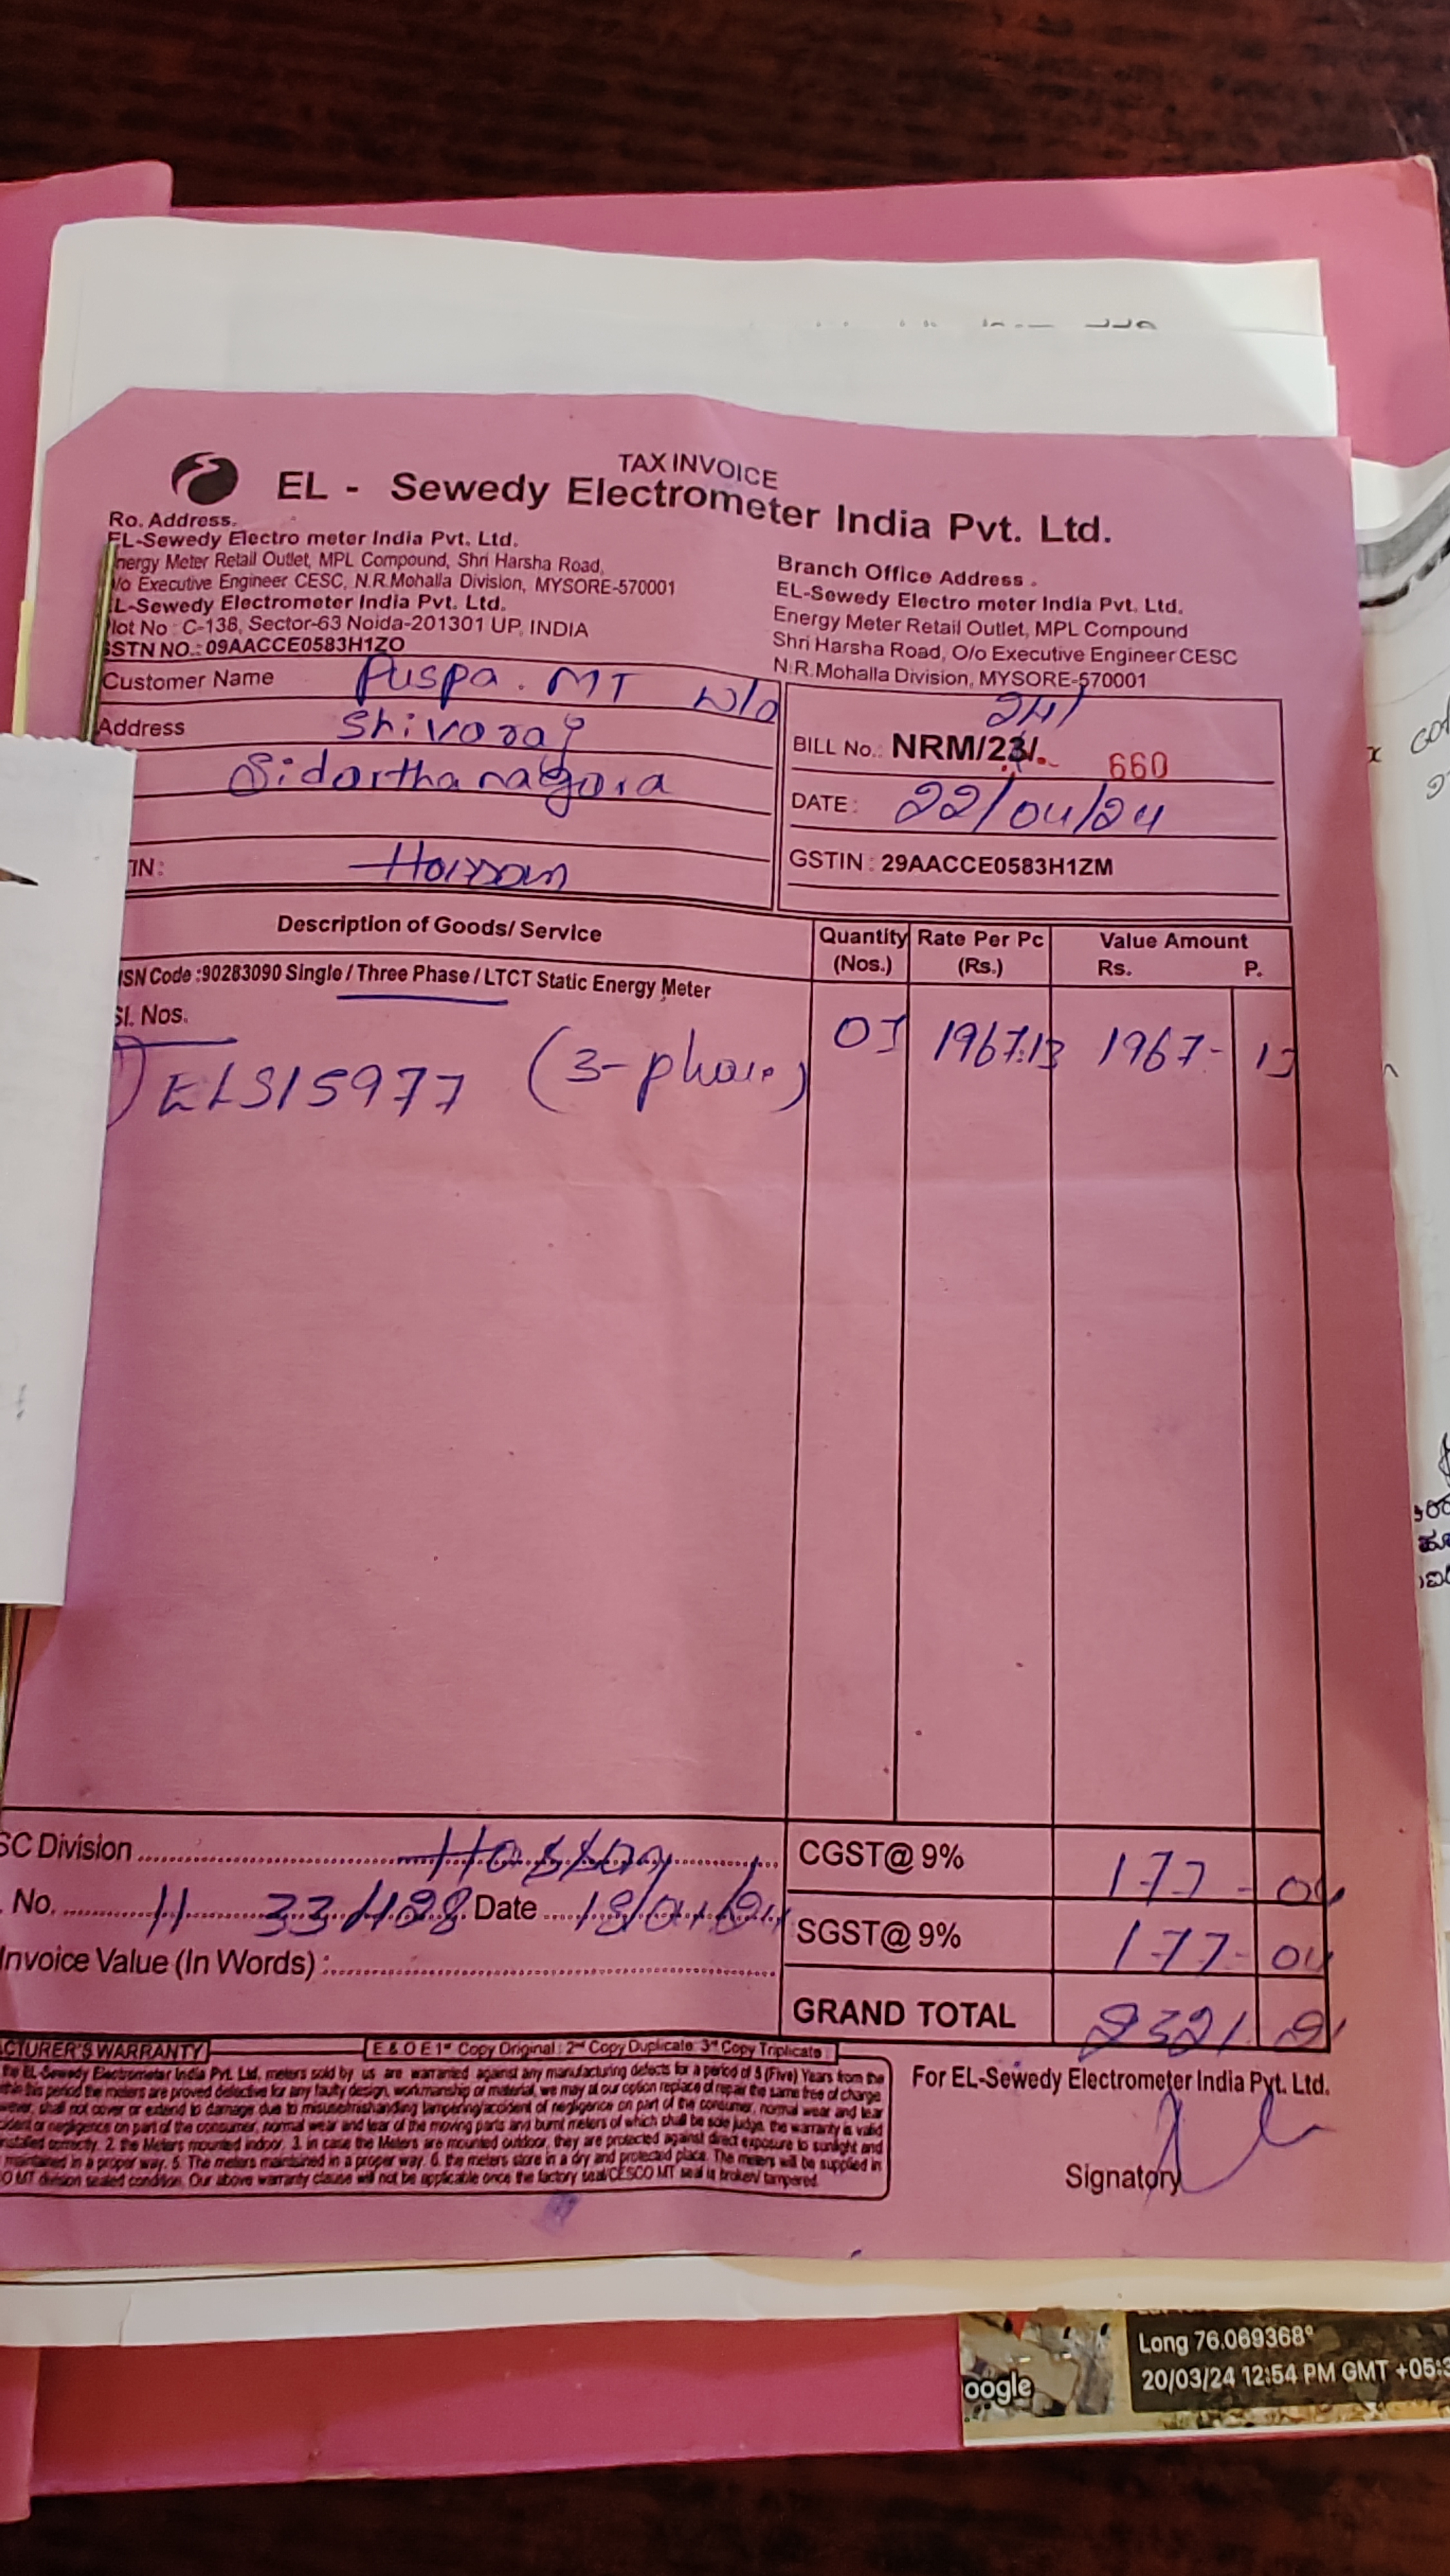 TAX INVOICE
EL - Sewedy Electrometer India Pvt. Ltd.
Ro. Address.
EL-Sewedy Electro meter India Pvt. Ltd.
nergy Meter Retail Outlet, MPL Compound, Shri Harsha Road,
/o Executive Engineer CESC, N.R.Mohalla Division, MYSORE-570001
L-Sewedy Electrometer India Pvt. Ltd.
lot No : C-138, Sector-63 Noida-201301 UP, INDIA
STN NO.: 09AACCE0583H1ZO
Branch Office Address .
EL-Sewedy Electro meter India Pvt. Ltd.
Energy Meter Retail Outlet, MPL Compound
Shri Harsha Road, O/o Executive Engineer CESC
N.R.Mohalla Division, MYSORE-570001
Customer Name Puspa. MT W/o
Address Shivaraj
Sidarthanagara
IN: Hassan
24/
BILL No.: NRM/23/. 660
DATE: 22/04/24
GSTIN : 29AACCE0583H1ZM
Description of Goods/ Service Quantity (Nos.) Rate Per Pc (Rs.) Value Amount Rs. P.
ISN Code :90283090 Single / Three Phase / LTCT Static Energy Meter
Sl. Nos.
ELS15977 (3-phase) 01 1967.13 1967- 13
SC Division Hassan
CGST@ 9% 177 - 04
. No. 11 33/128 Date
SGST@ 9% 177- 04
Invoice Value (In Words) :
GRAND TOTAL 2321 21
CTURER'S WARRANTY
E & O E 1st Copy Original : 2nd Copy Duplicate 3rd Copy Triplicate
he EL-Sewedy Electrometer India Pvt. Ltd, meters sold by us are warranted against any manufacturing defects for a period of 5 (Five) Years from the
thin this period the meters are proved defective for any faulty design, workmanship or material, we may at our option replace or repair the same free of charge.
ever, shall not cover or extend to damage due to misuse/mishandling tampering/accident of negligence on part of the consumer, normal wear and tear
cident or negligence on part of the consumer, normal wear and tear of the moving parts and burnt meters of which shall be sole judge, the warranty is valid
installed correctly. 2. the Meters mounted indoor. 3. In case the Meters are mounted outdoor, they are protected against direct exposure to sunlight and
maintained in a proper way. 5. The meters maintained in a proper way. 6. the meters store in a dry and protected place. The meters will be supplied in
O MT division sealed condition. Our above warranty clause will not be applicable once the factory seal/CESCO MT seal is broken/ tampered.
For EL-Sewedy Electrometer India Pvt. Ltd.
Signatory
oogle
Long 76.069368°
20/03/24 12:54 PM GMT +05:3